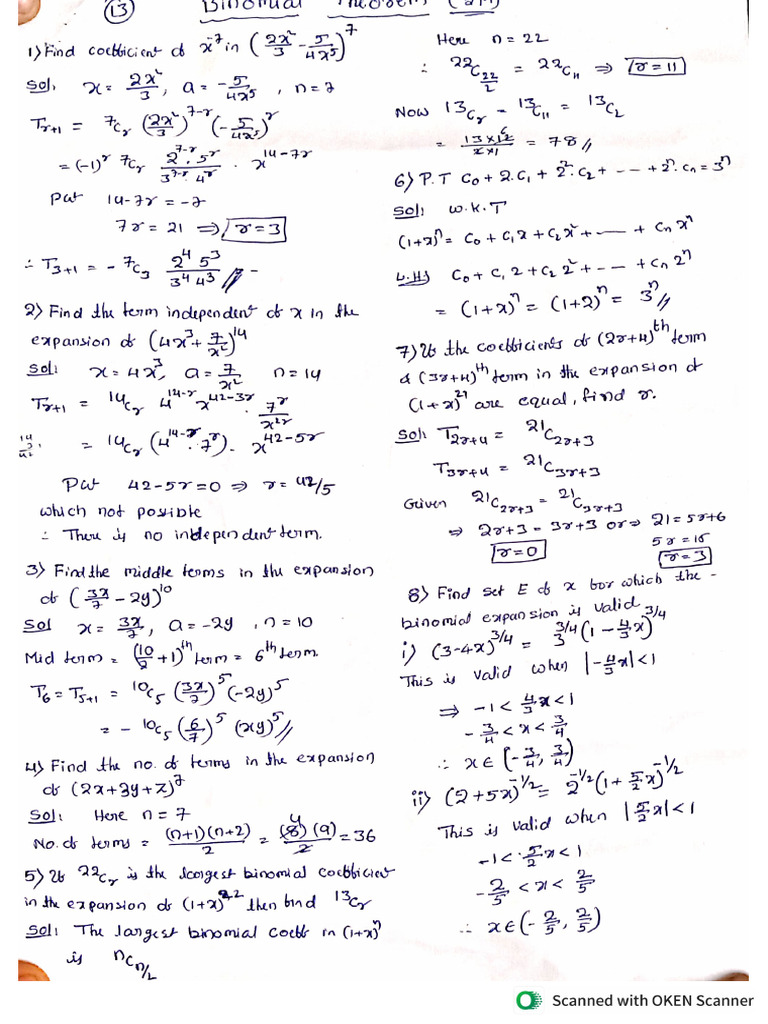 (13) Binomial Theorem (2M)
1) Find coefficient of x⁻⁷ in (2x²/3 - 5/4x⁵)⁷
Sol: x = 2x²/3, a = -5/4x⁵, n = 7
Tr+1 = ⁷Cr (2x²/3)⁷⁻ʳ (-5/4x⁵)ʳ
= (-1)ʳ ⁷Cr 2⁷⁻ʳ·5ʳ / 3⁷⁻ʳ·4ʳ · x¹⁴⁻⁷ʳ
Put 14-7r = -7
7r = 21 ⇒ r = 3
∴ T3+1 = - ⁷C₃ 2⁴ 5³ / 3⁴ 4³ // -
2) Find the term independent of x in the
expansion of (4x³ + 7/x²)¹⁴
Sol: x = 4x³, a = 7/x² n = 14
Tr+1 = ¹⁴Cr 4¹⁴⁻ʳ x⁴²⁻³ʳ · 7ʳ/x²ʳ
= ¹⁴Cr (4¹⁴⁻ʳ · 7ʳ) · x⁴²⁻⁵ʳ
Put 42-5r = 0 ⇒ r = 42/5
which not possible
∴ There is no independent term.
3) Find the middle terms in the expansion
of (3x/7 - 2y)¹⁰
Sol x = 3x/7, a = -2y, n = 10
Mid term = (10/2 + 1)ᵗʰ term = 6ᵗʰ term.
T₆ = T5+1 = ¹⁰C₅ (3x/7)⁵ (-2y)⁵
= - ¹⁰C₅ (6/7)⁵ (xy)⁵ //
4) Find the no. of terms in the expansion
of (2x+3y+z)⁷
Sol: Here n = 7
No. of terms = (n+1)(n+2)/2 = (8)(9)/2 = 36
4
5) If ²²Cr is the largest binomial coefficient
in the expansion of (1+x)²² then find ¹³Cr
Sol: The largest binomial coeff in (1+x)ⁿ
is ⁿCn/2
Here n = 22
∴ ²²C22/2 = ²²C₁₁ ⇒ r = 11
Now ¹³Cr = ¹³C₁₁ = ¹³C₂
= 13×12/2×1 = 78 //
6) P.T C₀ + 2.C₁ + 2².C₂ + --- + 2ⁿ.Cn = 3ⁿ
Sol: W.K.T
(1+x)ⁿ = C₀ + C₁x + C₂x² + --- + Cn xⁿ
L.HS C₀ + C₁ 2 + C₂ 2² + --- + Cn 2ⁿ
= (1+x)ⁿ = (1+2)ⁿ = 3ⁿ //
7) If the coefficients of (2r+4)ᵗʰ term
& (3r+4)ᵗʰ term in the expansion of
(1+x)²¹ are equal, find r.
Sol: T2r+4 = ²¹C2r+3
T3r+4 = ²¹C3r+3
Given ²¹C2r+3 = ²¹C3r+3
⇒ 2r+3 = 3r+3 or ⇒ 21 = 5r+6
r = 0 5r = 15
r = 3
8) Find set E of x for which the -
binomial expansion is valid
i) (3-4x)³/⁴ = 3³/⁴ (1 - 4/3 x)³/⁴
This is valid when |-4/3 x| < 1
⇒ -1 < 4/3 x < 1
-3/4 < x < 3/4
∴ x ∈ (-3/4, 3/4)
ii) (2+5x)⁻¹/² = 2⁻¹/² (1 + 5/2 x)⁻¹/²
This is valid when |5/2 x| < 1
-1 < 5/2 x < 1
-2/5 < x < 2/5
∴ x ∈ (-2/5, 2/5)
Scanned with OKEN Scanner